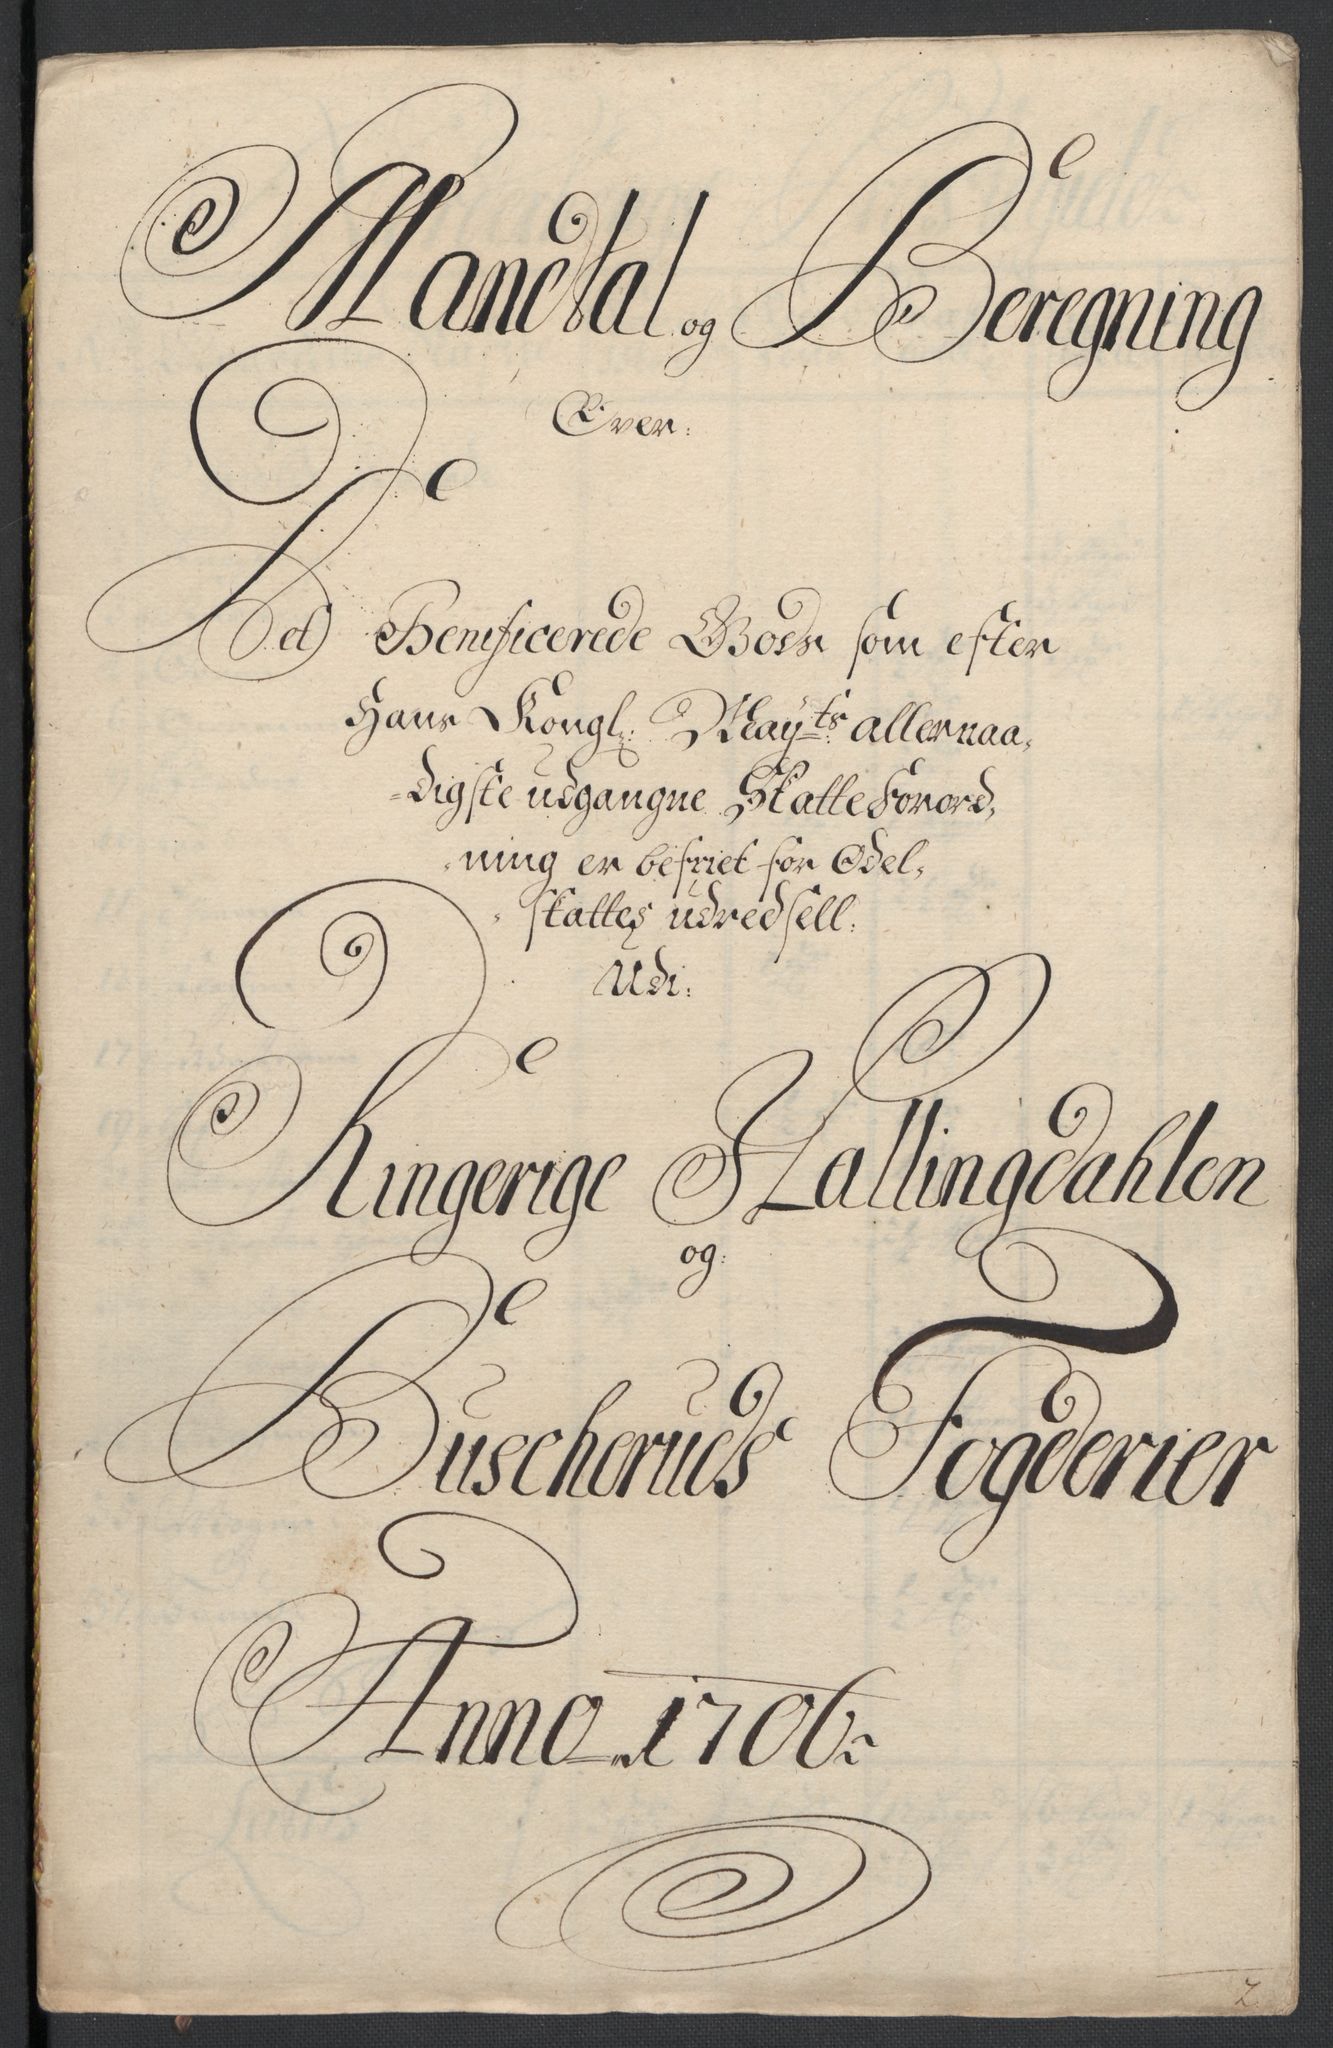 Mandtal og Beregning
Over:
Det Benificerede Gods som efter
Hans Kongl: Mayts allernaa,
=digste udgangne Skatte Forord,
ning er befriet for Odel,
skattes udredsell:
Udi:
Ringerige Hallingdahlen
og:
Buscheruds Fogderier
Anno 1706:
2